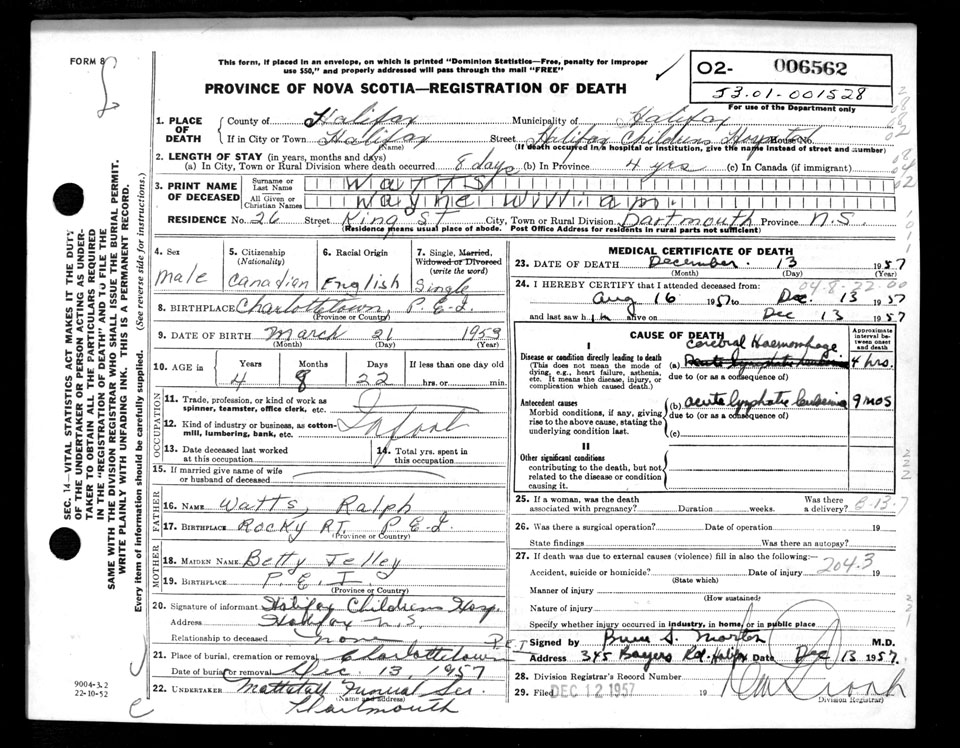 FORM 8
This form, if placed in an envelope, on which is printed "Dominion Statistics—Free, penalty for improper
use $50," and properly addressed will pass through the mail "FREE"
PROVINCE OF NOVA SCOTIA—REGISTRATION OF DEATH
02- 006562
53.01-001528
For use of the Department only
1. PLACE OF DEATH
County of Halifax Municipality of Halifax
If in City or Town Halifax Street Halifax Childrens Hospital House No.
(Name) (If death occurred in a hospital or institution, give the name instead of street and number)
2. LENGTH OF STAY (in years, months and days)
(a) In City, Town or Rural Division where death occurred 8 days (b) In Province 4 yrs (c) In Canada (if immigrant)
3. PRINT NAME OF DECEASED
Surname or Last Name WATTS
All Given or Christian Names WAYNE WILLIAM
RESIDENCE No. 26 Street King St City, Town or Rural Division Dartmouth Province N.S.
(Residence means usual place of abode. Post Office Address for residents in rural parts not sufficient)
4. Sex male
5. Citizenship (Nationality) Canadian
6. Racial Origin English
7. Single, Married, Widowed or Divorced (write the word) Single
8. BIRTHPLACE Charlottetown, P.E.I.
(Province or Country)
9. DATE OF BIRTH March 21 1953
(Month) (Day) (Year)
10. AGE in Years 4 Months 8 Days 22 If less than one day old hrs. or min.
OCCUPATION
11. Trade, profession, or kind of work as spinner, teamster, office clerk, etc. Infant
12. Kind of industry or business, as cotton-mill, lumbering, bank, etc.
13. Date deceased last worked at this occupation
14. Total yrs. spent in this occupation
15. If married give name of wife or husband of deceased
FATHER
16. NAME Watts, Ralph
17. BIRTHPLACE Rocky PT. P.E.I.
(Province or Country)
MOTHER
18. MAIDEN NAME Betty Jelley
19. BIRTHPLACE P.E.I
(Province or Country)
20. Signature of informant Halifax Childrens Hosp.
Address Halifax N.S.
Relationship to deceased none
21. Place of burial, cremation or removal Charlottetown P.E.I
Date of burial or removal Dec 13, 1957
22. UNDERTAKER Mattatall Funeral Ser.
(Name and address)
Dartmouth
MEDICAL CERTIFICATE OF DEATH
23. DATE OF DEATH December 13 1957
(Month) (Day) (Year)
24. I HEREBY CERTIFY that I attended deceased from: 04-8-22-00
Aug 16 1957 to Dec. 13 1957
and last saw him alive on Dec 13 1957
CAUSE OF DEATH
Approximate interval between onset and death
I
Disease or condition directly leading to death
(This does not mean the mode of dying, e.g., heart failure, asthenia, etc. It means the disease, injury, or complication which caused death.)
Cerebral Haemorrhage
(a) 4 hrs.
due to (or as a consequence of)
Antecedent causes
Morbid conditions, if any, giving rise to the above cause, stating the underlying condition last.
(b) acute lymphatic leukemia 9 mos
due to (or as a consequence of)
(c)
II
Other significant conditions
contributing to the death, but not related to the disease or condition causing it.
25. If a woman, was the death associated with pregnancy? Duration weeks. Was there a delivery?
26. Was there a surgical operation? Date of operation 19
State findings Was there an autopsy?
27. If death was due to external causes (violence) fill in also the following:—
204.3
Accident, suicide or homicide? Date of injury 19
(State which)
Manner of injury
(How sustained)
Nature of injury
Specify whether injury occurred in industry, in home, or in public place
Signed by Bruce S. Morton M.D.
Address 345 Bayers Rd. Halifax Date Dec 13 1957.
28. Division Registrar's Record Number
29. Filed DEC 12 1957 19
(Division Registrar)
9004-3.2
22-10-52
SEC. 14—VITAL STATISTICS ACT MAKES IT THE DUTY
OF THE UNDERTAKER OR PERSON ACTING AS UNDER-
TAKER TO OBTAIN ALL THE PARTICULARS REQUIRED
IN THE "REGISTRATION OF DEATH" AND TO FILE THE
SAME WITH THE DIVISION REGISTRAR WHO SHALL ISSUE THE BURIAL PERMIT.
WRITE PLAINLY WITH UNFADING INK. THIS IS A PERMANENT RECORD.
Every item of information should be carefully supplied. (See reverse side for instructions.)